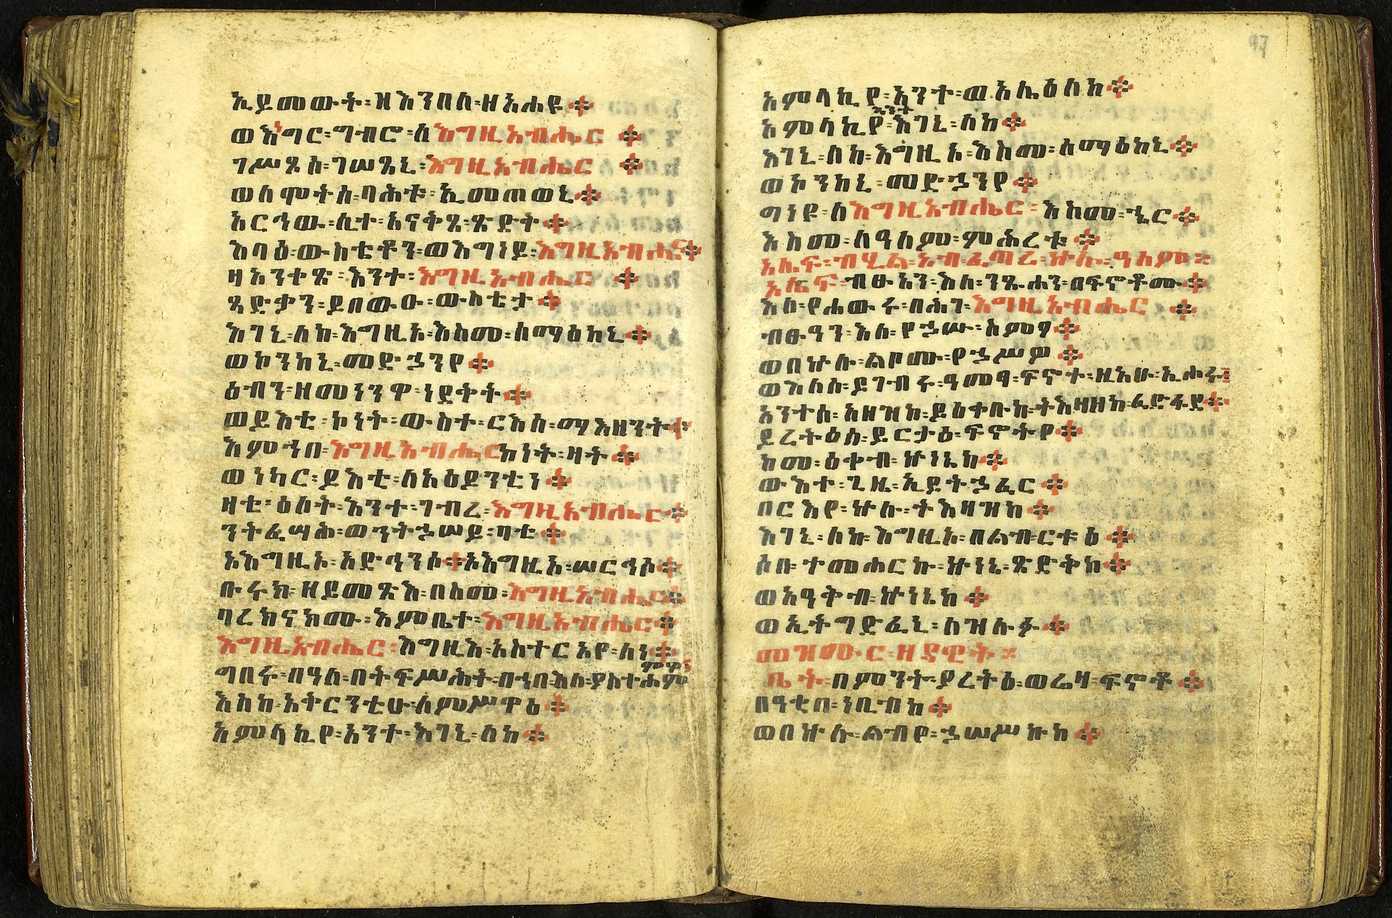 ኢይመውት፡ዘእንበለ፡ዘአሐዩ።
ወእነግር፡ግብሮ፡ለእግዚአብሔር።
ገሥጾሰ፡ገሠጸኒ፡እግዚአብሔር።
ወለሞትሰ፡ባሕቱ፡ኢመጠወኒ።
አርኅው፡ሊተ፡አናቅጸ፡ጽድቅ።
እባዕ፡ውስቴቶን፡ወእግነይ፡እግዚአብሔር።
ዛአንቀጽ፡እንተ፡እግዚአብሔር።
ጻድቃን፡ይበውኡ፡ውስቴታ።
እገኒ፡ለከ፡እግዚኦ፡እስመ፡ሰማዕከኒ።
ወኮንከኒ፡መድኃንየ።
ዕብን፡ዘመነንዋ፡ነደቅት።
ወይእቲ፡ኮነት፡ውስተ፡ርእሰ፡ማእዘንት።
እምኀበ፡እግዚአብሔር፡ኮነት፡ዛቲ።
ወነካር፡ይእቲ፡ለአዕይንቲነ።
ዛቲ፡ዕለት፡እንተ፡ገብረ፡እግዚአብሔር።
ንትፈሣሕ፡ወንትኃሠይ፡ባቲ።
ኦእግዚኦ፡አድኅንሶ።ኦእግዚኦ፡ሠርኅሶ።
ቡሩክ፡ዘይመጽእ፡በስመ፡እግዚአብሔር።
ባረክናክሙ፡እምቤተ፡እግዚአብሔር።
እግዚአብሔር፡እግዚእ፡አስተርአየ፡ለነ።
ግበሩ፡በዓለ፡በትፍሥሕት፡በኀበ፡እለ፡ያስተሐምምዎ
እስከ፡አቅርንቲሁ፡ለምሥዋዕ።
አምላኪየ፡አንተ፡እገኒ፡ለከ።
97
አምላኪየ፡አንተ፡ወአሌዕለከ።
አምላኪየ፡አንተ፡እገኒ፡ለከ።
እገኒ፡ለከ፡እግዚኦ፡እስመ፡ሰማዕከኒ።
ወኮንከኒ፡መድኃንየ።
ግነዩ፡ለእግዚአብሔር፡እስመ፡ኄር።
እስመ፡ለዓለም፡ምሕረቱ።
አሌፍ፡ብሂል፡አብ፡ፈጣሬ፡ኵሉ፡ዓለም።
አሌፍ፡ብፁአን፡እለ፡ንጹሐን፡በፍኖቶሙ።
እለ፡የሐውሩ፡በሕገ፡እግዚአብሔር።
ብፁዓን፡እለ፡የኃሡ፡ስምዖ።
ወበኵሉ፡ልቦሙ፡የኃሥዎ።
ወእለሰ፡ይገብሩ፡ዓመፃ፡ፍኖተ፡ዚአሁ፡ኢሖሩ።
አንተሰ፡አዘዝከ፡ይዕቀቡ፡ከ፡ትእዛዘከ፡ፈድፋደ።
ይረትዕሰ፡ይርታዕ፡ፍኖትየ።
ከመ፡ዕቀብ፡ኵነኔከ።
ውእተ፡ጊዜ፡ኢይትኃፈር።
በርእየ፡ኵሉ፡ትእዛዝከ።
እገኒ፡ለከ፡እግዚኦ፡በልብ፡ርቱዕ።
ሶበ፡ተመሐርኩ፡ኵነኔ፡ጽድቅከ።
ወአዓቅብ፡ኵነኔከ።
ወኢትግድፈኒ፡ለዝሉፉ።
መዝሙር፡ዘዳዊት።
ቤት፡በምንት፡ያረትዕ፡ወሬዛ፡ፍኖቶ።
በዓቂበ፡ነቢብከ።
ወበኵሉ፡ልብየ፡ኃሠሥኩከ።